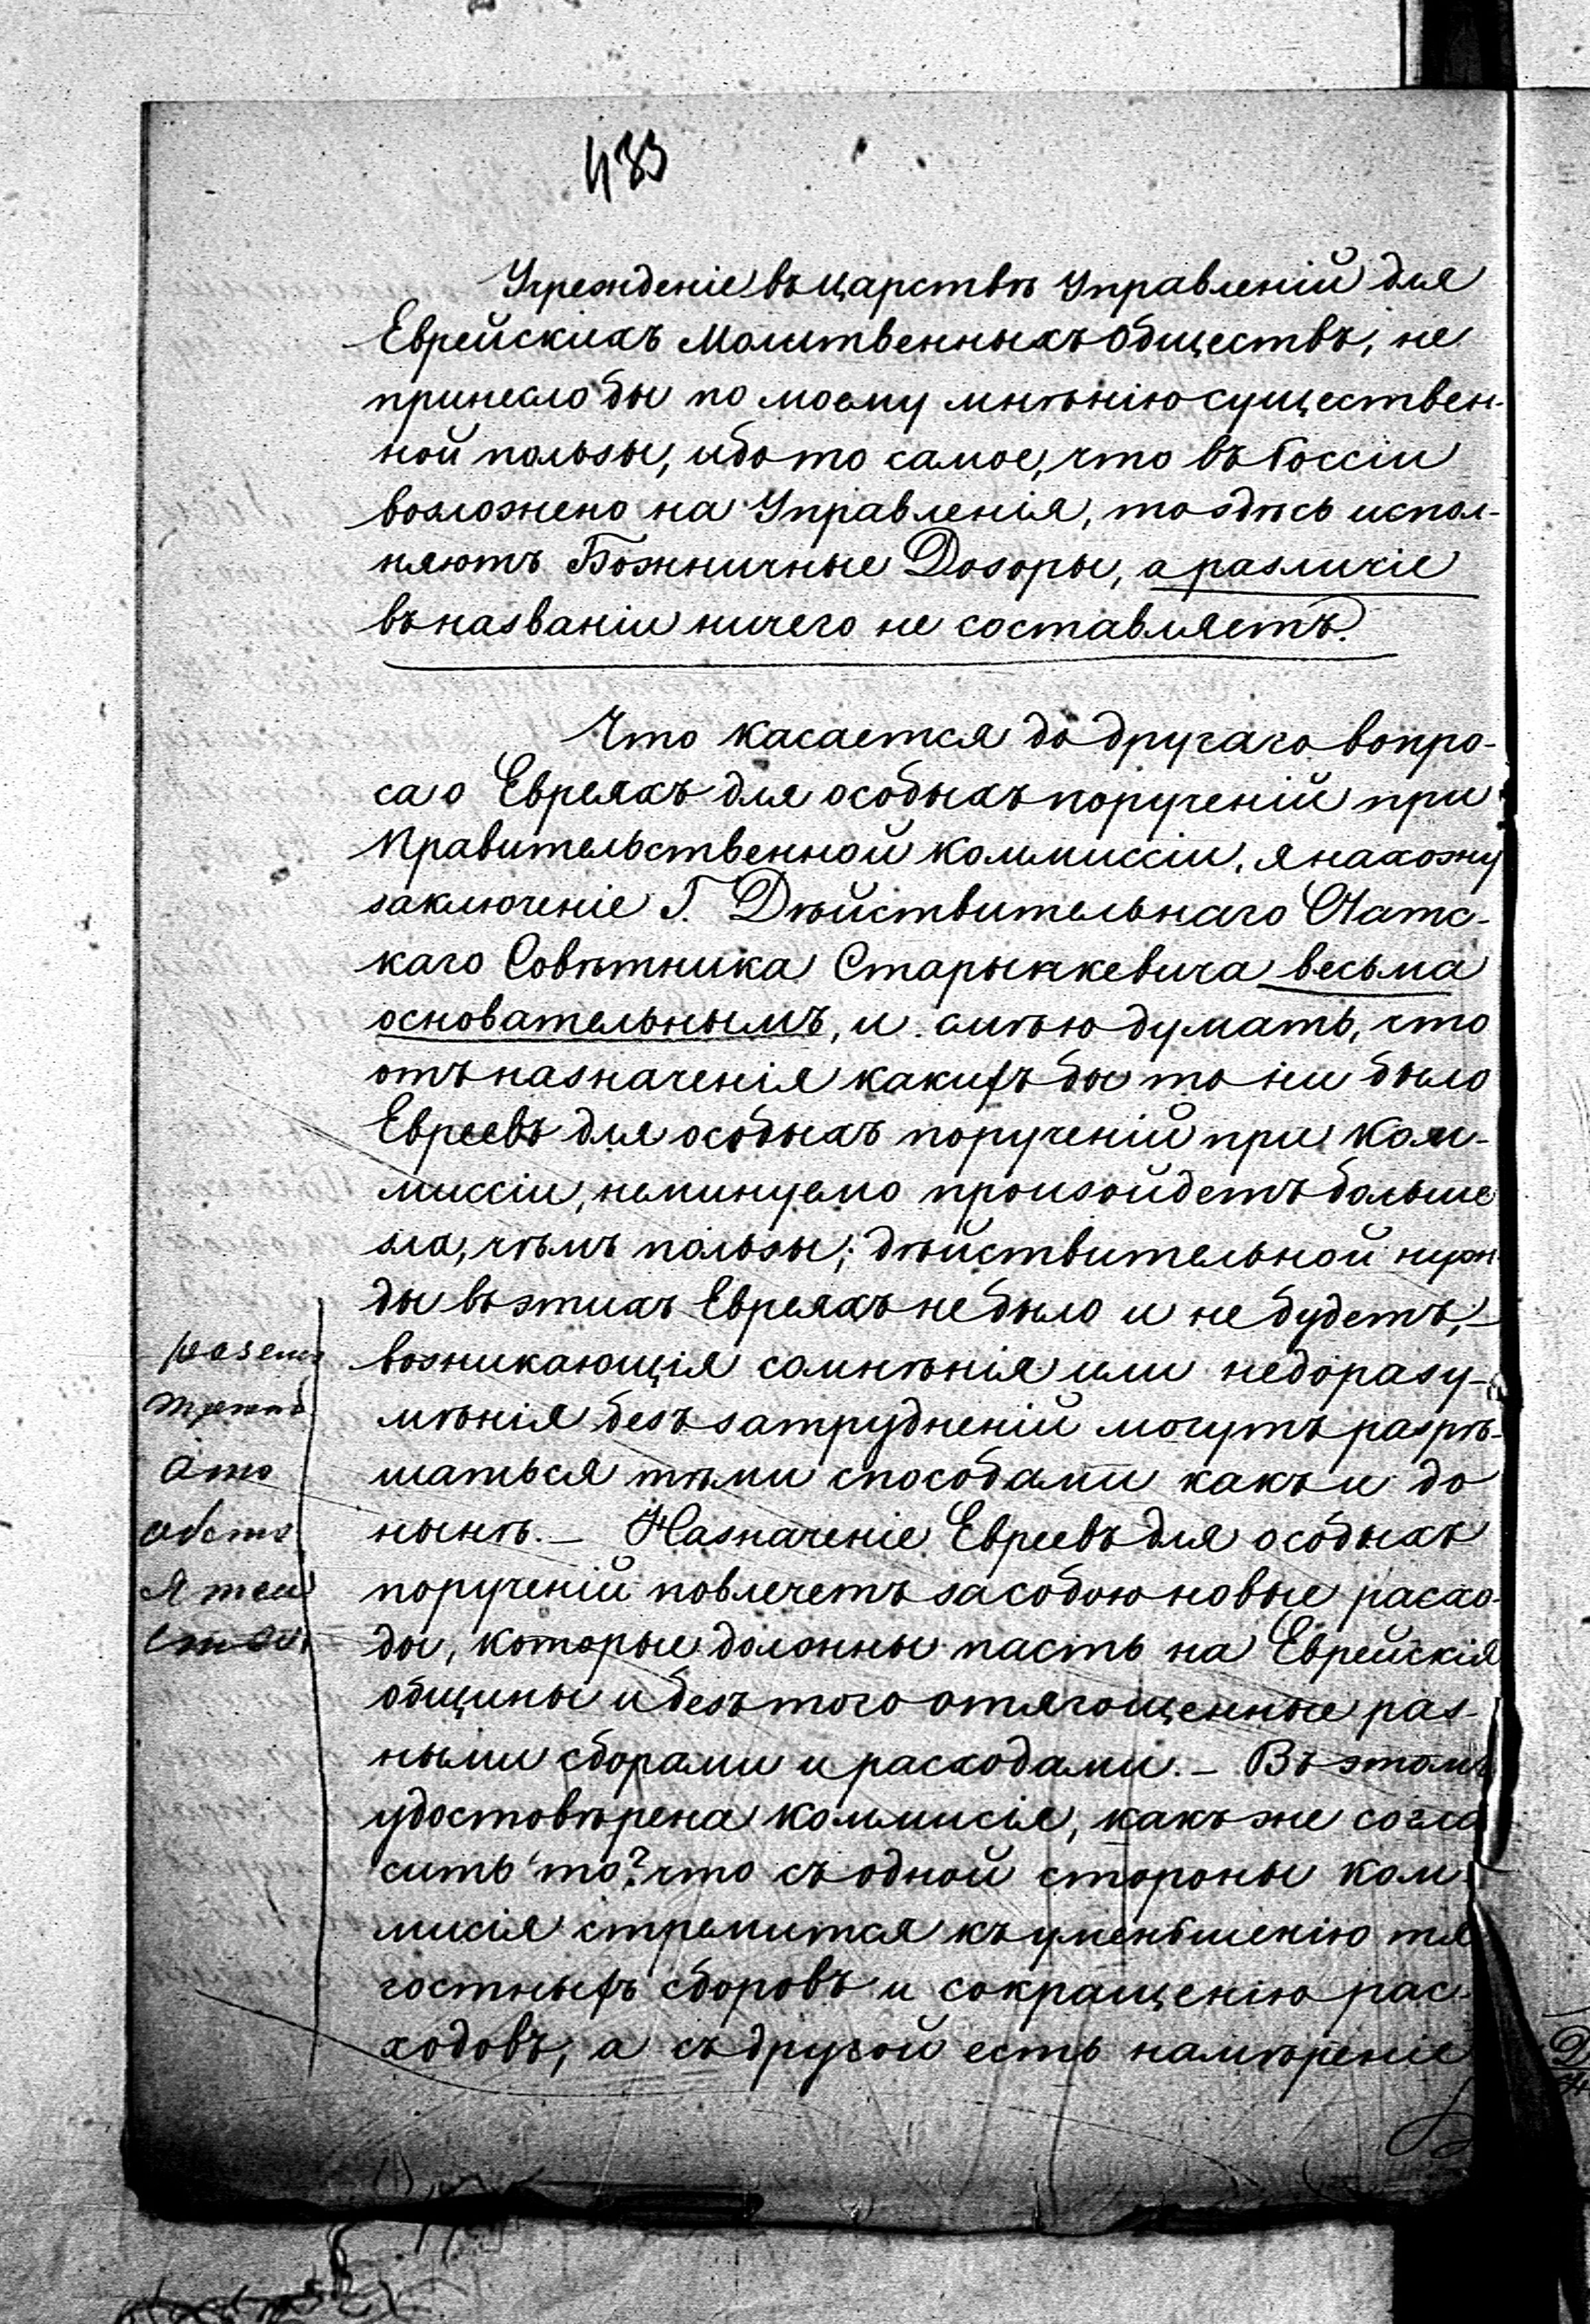 483
Учрежденіе въ царствѣ Управленій для
Еврейскихъ Молитвенныхъ обществъ, не
принесло бы по моему мнѣнію существен-
ной пользы, ибо то самое, что въ Россіи
возложено на Управленія, то здѣсь испол-
няютъ Божничные Дозоры, а различіе
въ названіи ничего не составляетъ.
Что касается до другаго вопро-
са о Евреяхъ для особыхъ порученій при
Правительственной Коммиссіи, я нахожу
заключеніе Г. Дѣйствительнаго Статс-
каго Совѣтника Старынкевича весьма
основательнымъ, и смѣю думать, что
отъ назначенія какихъ бы то ни было
Евреевъ для особыхъ порученій при Ком-
миссіи, неминуемо произойдетъ больше
зла, чѣмъ пользы; дѣйствительной нуж-
ды въ этихъ Евреяхъ не было и не будетъ,
возникающія сомнѣнія или недоразу-
мѣнія безъ затрудненій могутъ разрѣ-
шаться тѣми способами какъ и до
нынѣ. — Назначеніе Евреевъ для особыхъ
порученій повлечетъ за собою новые расхо-
ды, которые должны пасть на Еврейскія
общины и безъ того отягощенные раз-
ными сборами и расходами. — Въ этомъ
удостовѣрена коммисія, какъ же согла
сить то? что съ одной стороны ком
мисія стремится къ уменьшенію тя
гостныхъ сборовъ и сокращенію рас
ходовъ, а съ другой есть намѣреніе
это
обсто
ятель